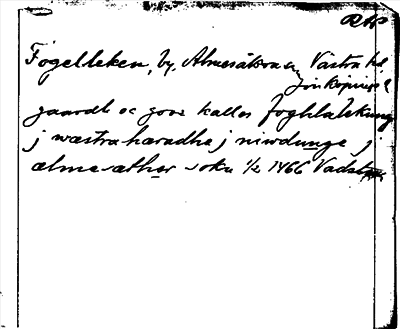 RAP
Fogelleken, by, Almesåkra sn, Västra hd
Jönköpings l
gaardh oc goos kallos foghlalekung
j wæstra hæradhe j niwdunge j
ælmesæther sokn ½ 1466 Vadstena